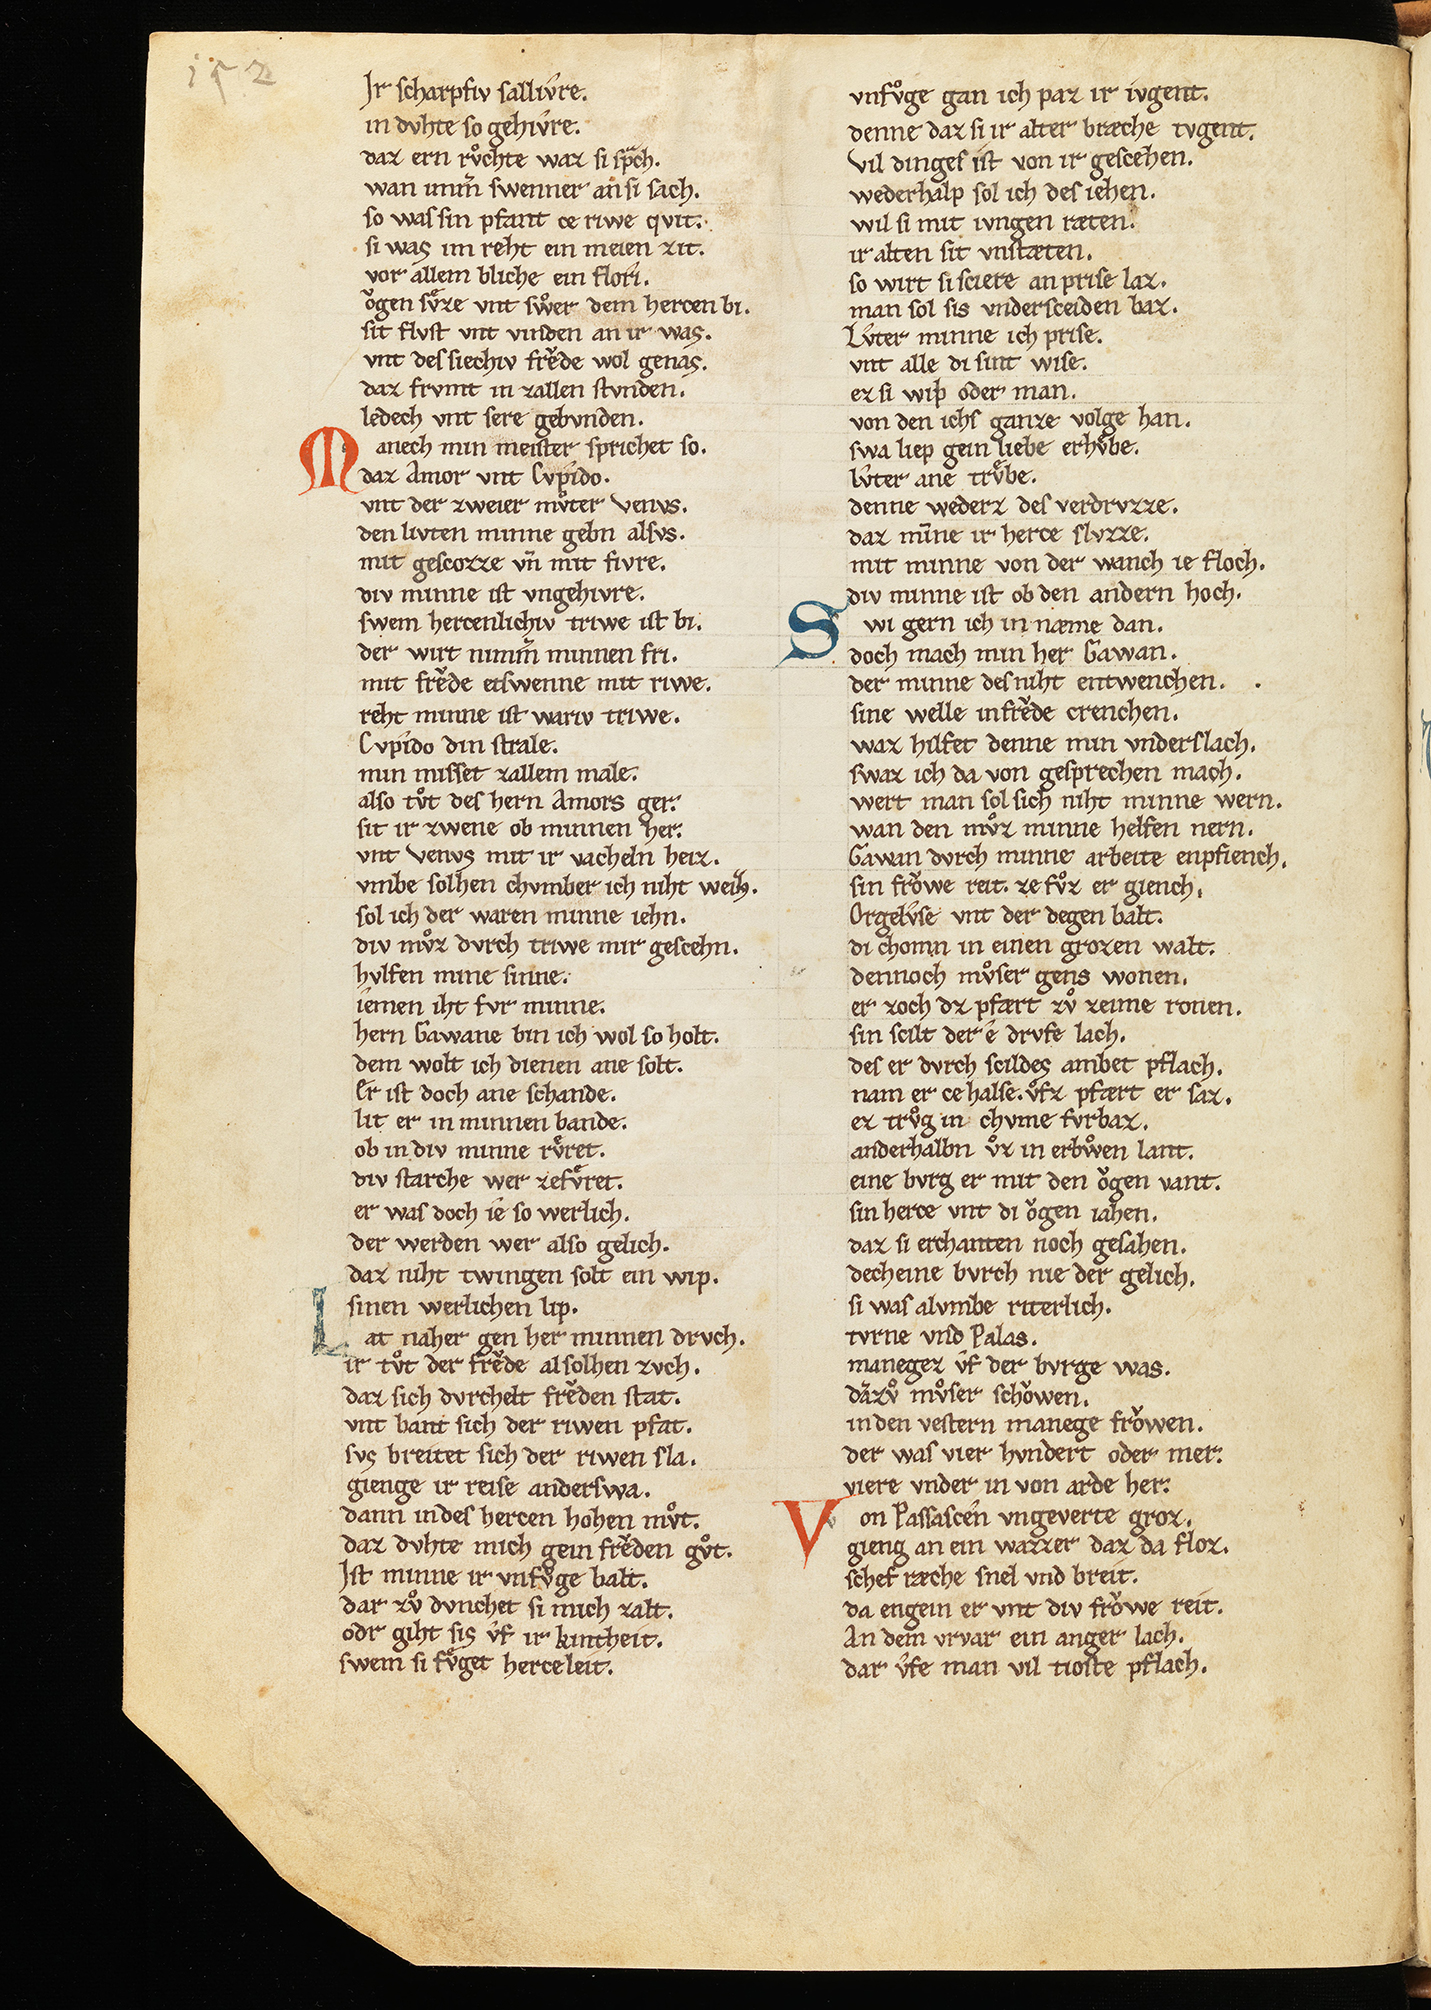 152
Ir scharpfiv sallivͤre.
in dvhte so gehivͤre.
daz ern rvͦchte waz si spͣch.
wan imm̄ swenner an si sach.
so was sin pfant ce riwe qvit.
si was im reht ein meien zit.
vor allem bliche ein flori.
ǒgen svͤze vnt svͦer dem hercen bi.
sit flvst vnt vinden an ir was.
vnt des siechiv frěde wol genas.
daz frvmt in zallen stvnden.
ledech vnt sere gebvnden.
Manech min meister sprichet so.
daz Amor vnt Cvpido.
vnt der zweier mvͦter Venvs.
den livten minne gebn alsvs.
mit gescozze vn̄ mit fivre.
div minne ist vngehivre.
swem hercenlichiv triwe ist bi.
der wirt nimm̄ minnen fri.
mit frěde etswenne mit riwe.
reht minne ist wariv triwe.
Cvpido din strale.
min misset zallem male.
also tvͦt des hern Amors ger.
sit ir zwene ob minnen her.
vnt Venvs mit ir vacheln heiz.
vmbe solhen chvmber ich niht weiz.
sol ich der waren minne iehn.
div mvͦz dvrch triwe mir gescehn.
hvlfen mine sinne.
iemen iht fvr minne.
hern Gawane bin ich wol so holt.
dem wolt ich dienen ane solt.
Er ist doch ane schande.
lit er in minnen bande.
ob in div minne rvͤret.
div starche wer zefvͤret.
er was doch ie so werlich.
der werden wer also gelich.
daz niht twingen solt ein wip.
sinen werlichen lip.
Lat naher gen her minnen drvch.
ir tvͦt der frěde al solhen zvch.
daz sich dvrchelt frěden stat.
vnt bant sich der riwen pfat.
svs breitet sich der riwen sla.
gienge ir reise anderswa.
dann in des hercen hohen mvͦt.
daz dvhte mich gein frěden gvͦt.
Ist minne ir vnfvͦge balt.
dar zvͦ dvnchet si mich zalt.
odr giht sis vͤf ir kintheit.
swem si fvͤget herceleit.
vnfvͦge gan ich paz ir ivgent.
denne daz si ir alter bræche tvgent.
Vil dinges ist von ir gescehen.
wederhalp sol ich des iehen.
wil si mit ivngen ræten.
ir alten sit vnstæten.
so wirt si sciere an prise laz.
man sol sis vndersceiden baz.
Lvͤter minne ich prise.
vnt alle di sint wise.
ez si wip oder man.
von den ichs ganze volge han.
swa liep gein liebe erhvͤbe.
lvͤter ane trvͤbe.
denne wederz des verdrvzze.
daz mīne ir herce slvzze.
mit minne von der wanch ie floch.
div minne ist ob den andern hoch.
Swi gern ich in næme dan.
doch mach min her Gawan.
der minne des niht entwenchen.
sine welle in frěde crenchen.
waz hilfet denne min vnderslach.
swaz ich da von gesprechen mach.
wert man sol sich niht minne wern.
wan den mvͦz minne helfen nern.
Gawan dvrch minne arbeite enpfiench.
sin frǒwe reit. ze fvͦz er giench.
Orgelvͤse vnt der degen balt.
di chomn in einen grozen walt.
dennoch mvͦser gens wonen.
er zoch dz pfært zvͦ zeime ronen.
sin scilt der ê drvfe lach.
des er dvrch scildes ambet pflach.
nam er ce halse. vͦfz pfært er saz.
ez trvͦg in chvme fvrbaz.
anderhalbn vͦz in erbvͦwen lant.
eine bvrg er mit den ǒgen vant.
sin herce vnt di ǒgen iahen.
daz si erchanten noch gesahen.
decheine bvrch nie der gelich.
si was alvmbe riterlich.
tvrne vnd Palas.
manegez vͤf der bvrge was.
dārzvͦ mvͦser schǒwen.
in den vestern manege frǒwen.
der was vier hvndert oder mer.
viere vnder in von arde her.
Von Passascen vngeverte groz.
gieng an ein wazzer daz da floz.
schef ræche snel vnd breit.
da engein er vnt div frǒwe reit.
An dem vrvar ein anger lach.
dar vͤfe man vil tioste pflach.